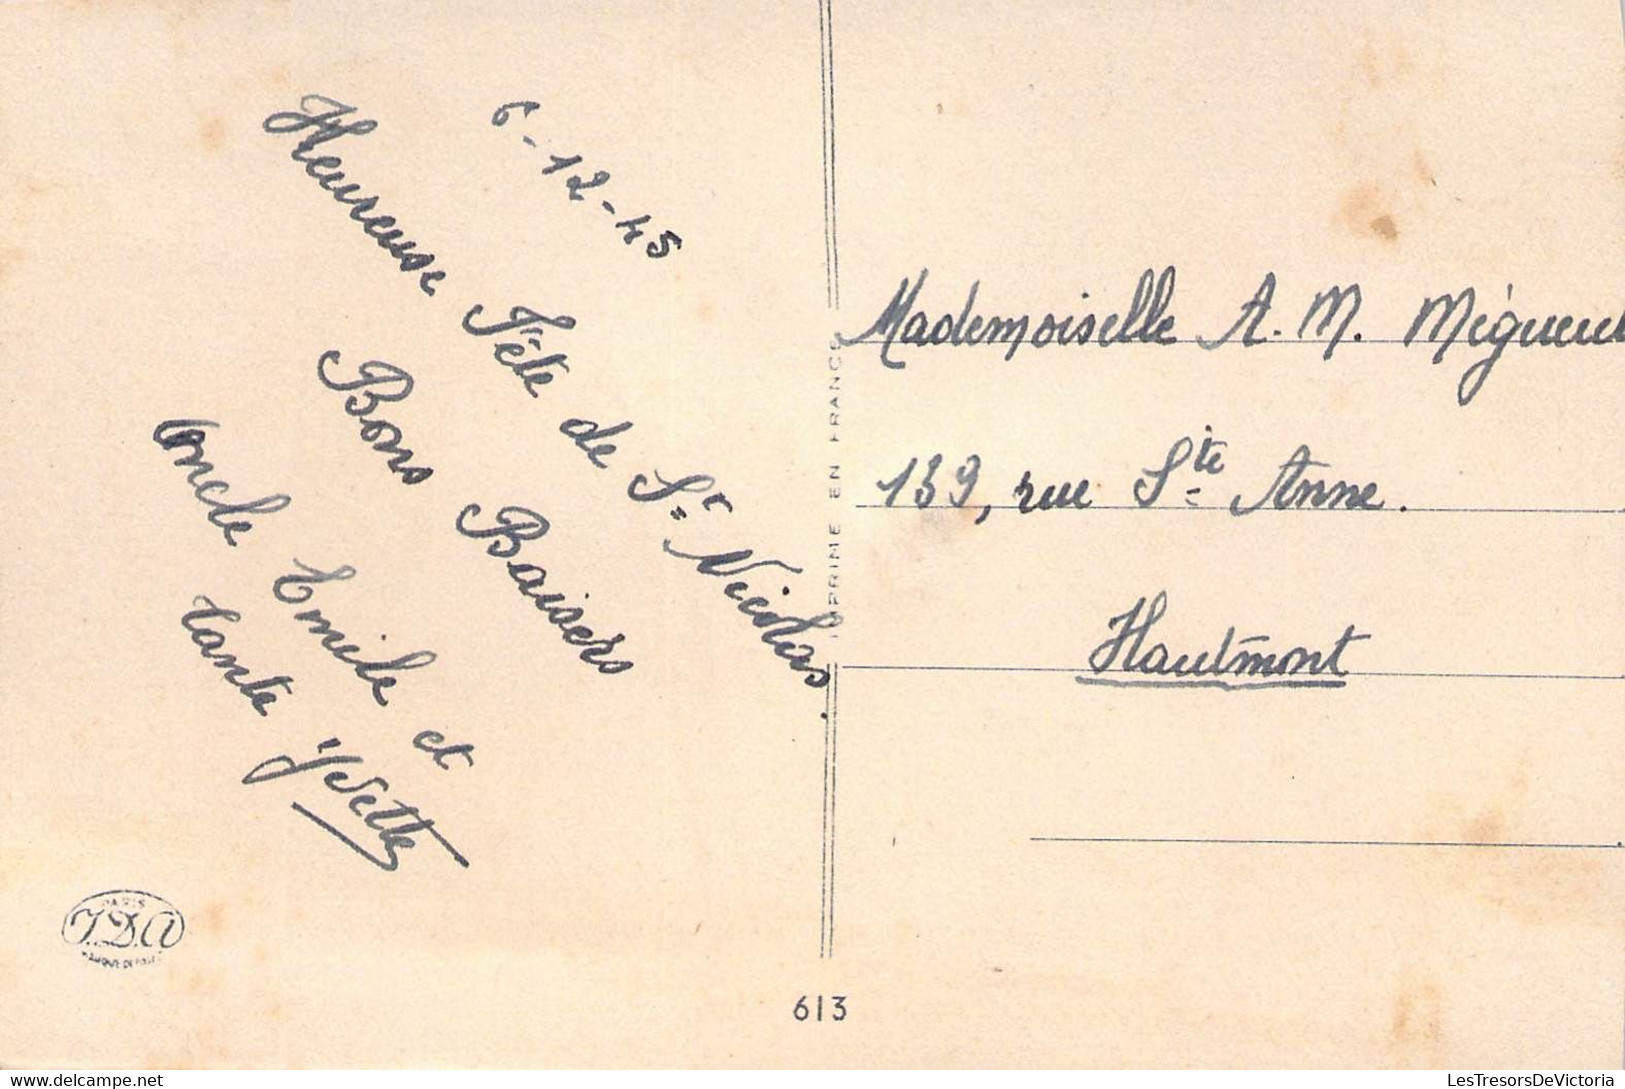 6-12-45
Heureuse Fête de St Nicolas.
Bons Baisers
Oncle Emile et
Tante Yvette
IMPRIMÉ EN FRANCE
Mademoiselle A. M.
139, rue Ste Anne.
Hautmont
PARIS
J.D.A
613
LesTresorsDeVictoria
delcampe.net